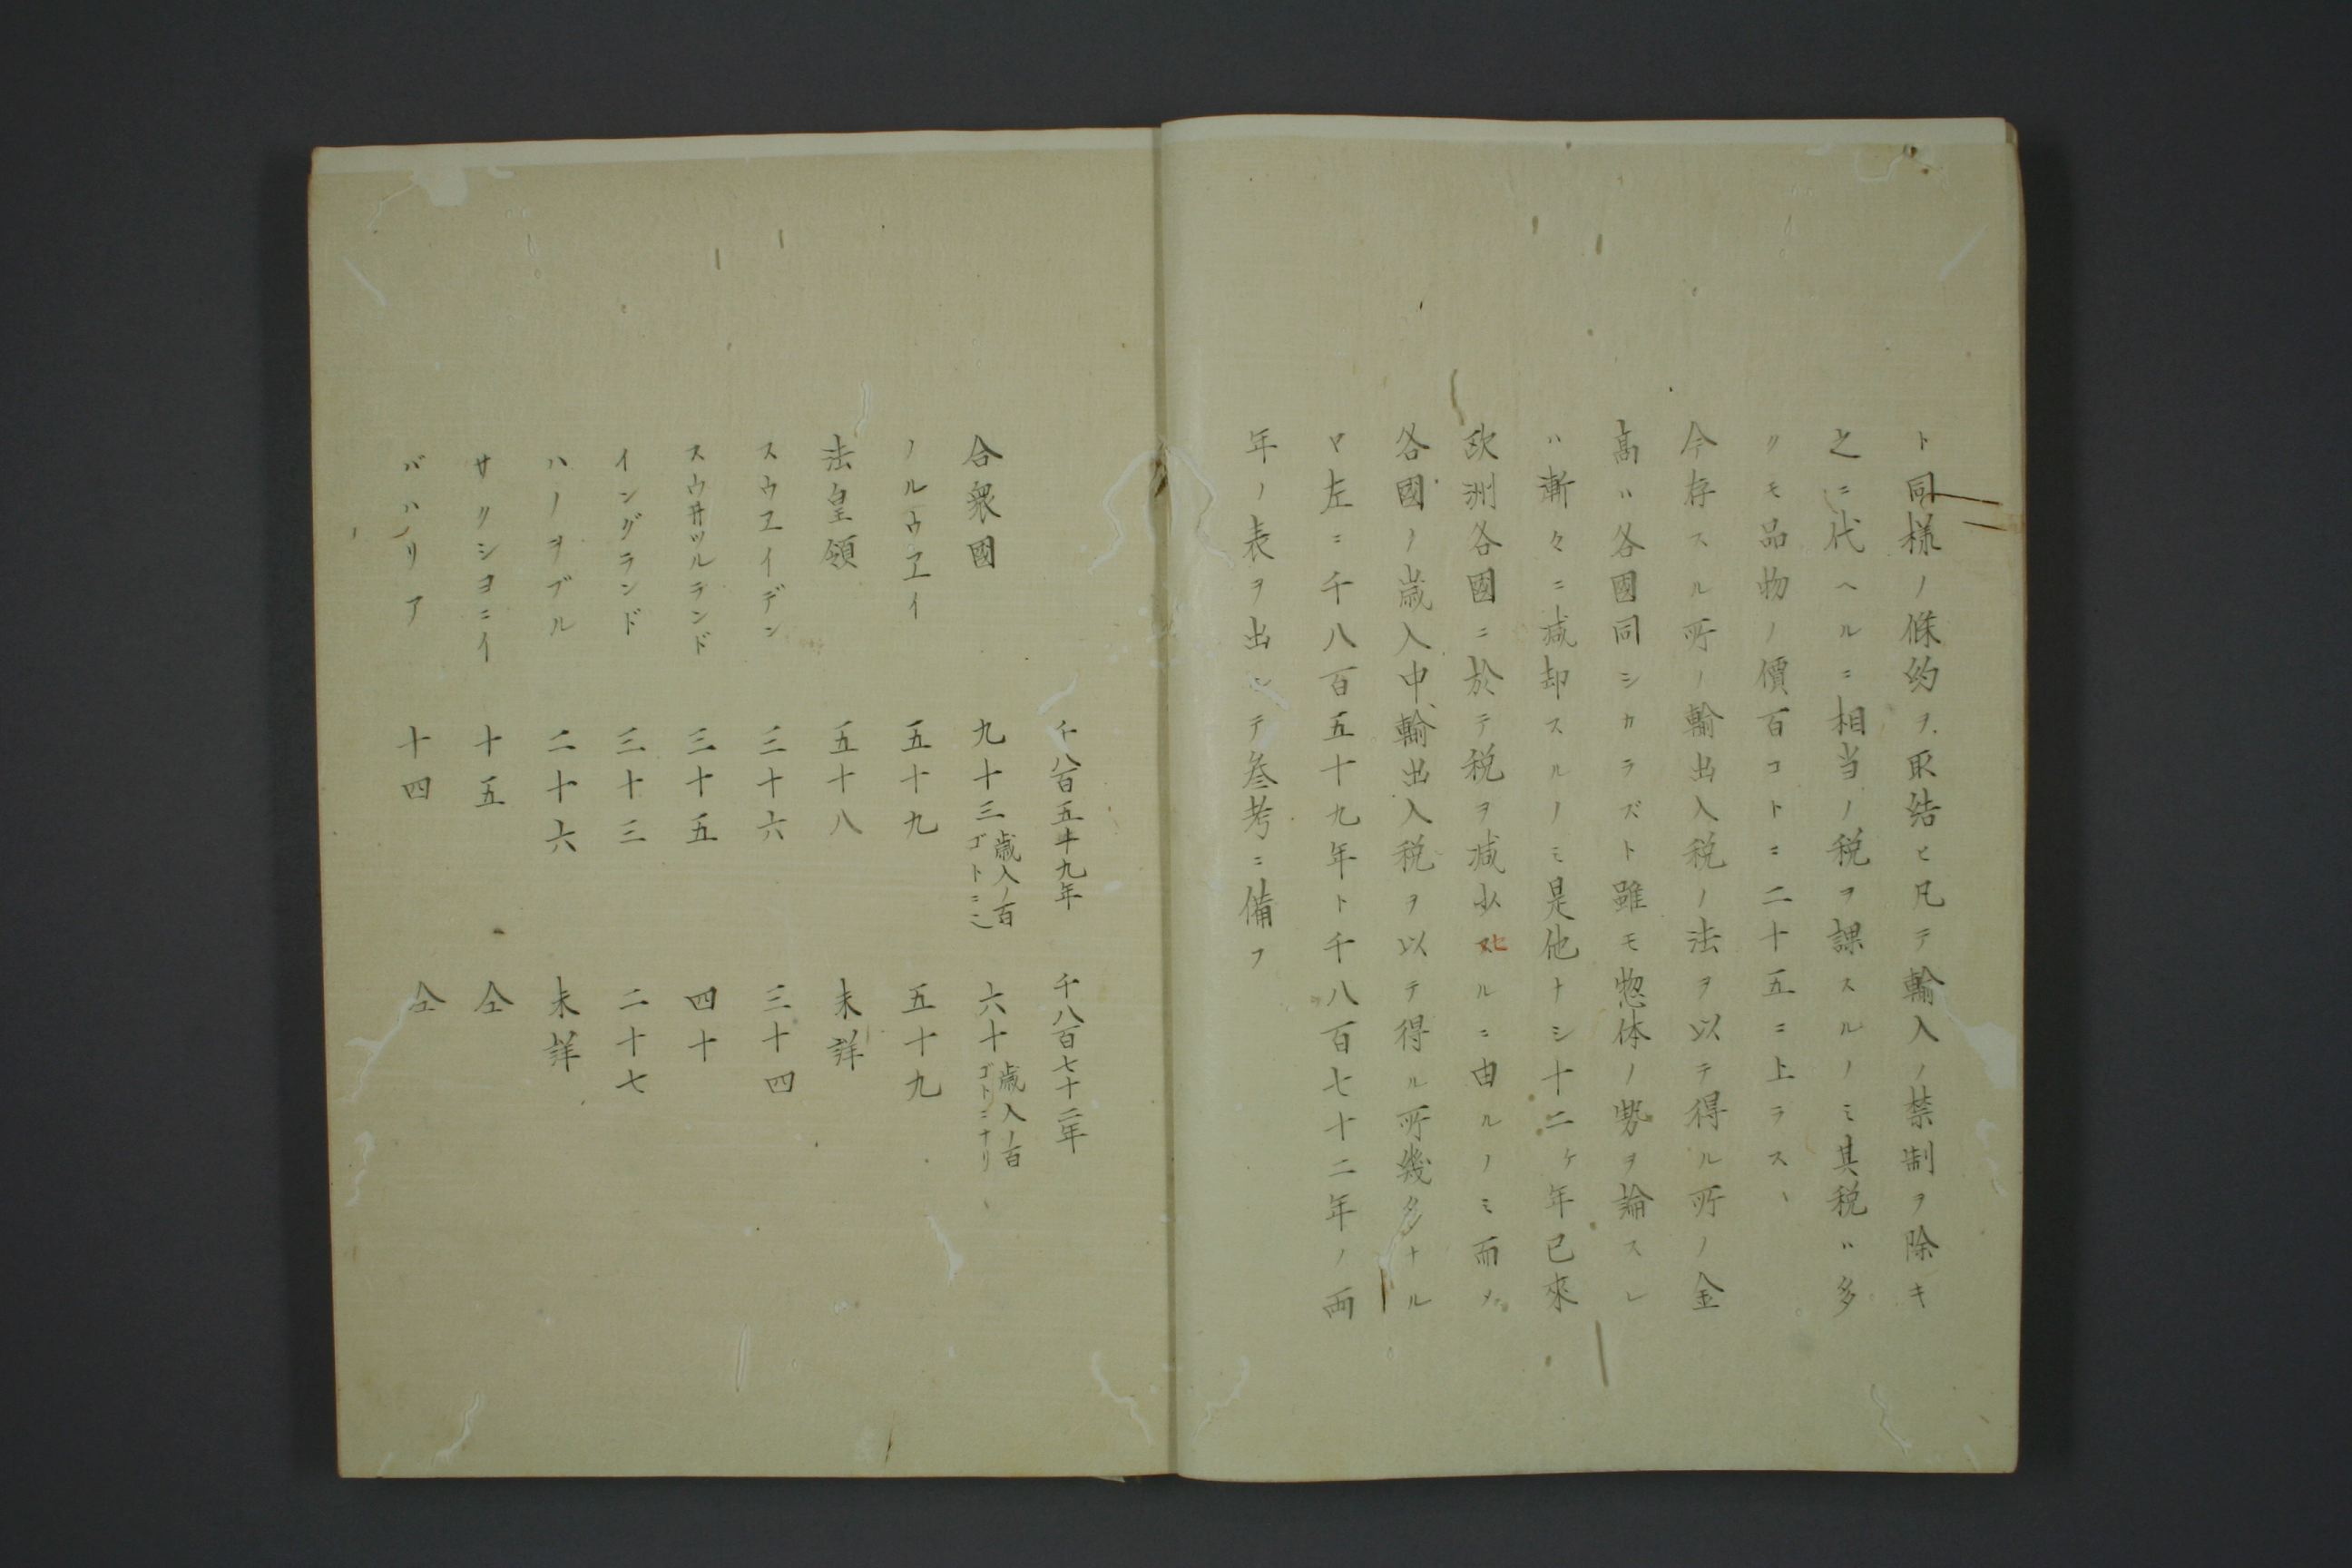 ト同様ノ條約ヲ取結ヒ凡テ輸入ノ禁制ヲ除キ
之ニ代ヘルニ相当ノ税ヲ課スルノミ其税ハ多
クモ品物ノ價百コトニ二十五ニ上ラス、
今存スル所ノ輸出入税ノ法ヲ以テ得ル所ノ金
高ハ各國同シカラズト雖モ惣体ノ勢ヲ論スレ
ハ漸々ニ減却スルノミ是他ナシ十二ケ年已來
欧洲各國ニ於テ税ヲ減少スルニ由ルノミ而メ
各國ノ歳入中輸出入税ヲ以テ得ル所幾多ナル
ヤ左ニ千八百五十九年ト千八百七十二年ノ両
年ノ表ヲ出シテ叅考ニ備フ
千八百五十九年 千八百七十二年
合衆國 九十三 歳入ノ百ゴトニ 六十 歳入ノ百ゴトニナリ
ノルウヱイ 五十九 五十九
法皇領 五十八 未詳
スウヱイデン 三十六 三十四
スウ井ツルランド 三十五 四十
イングランド 三十三 二十七
ハノヲブル 二十六 未詳
サクシヨニイ 十五 仝
バハリア 十四 仝